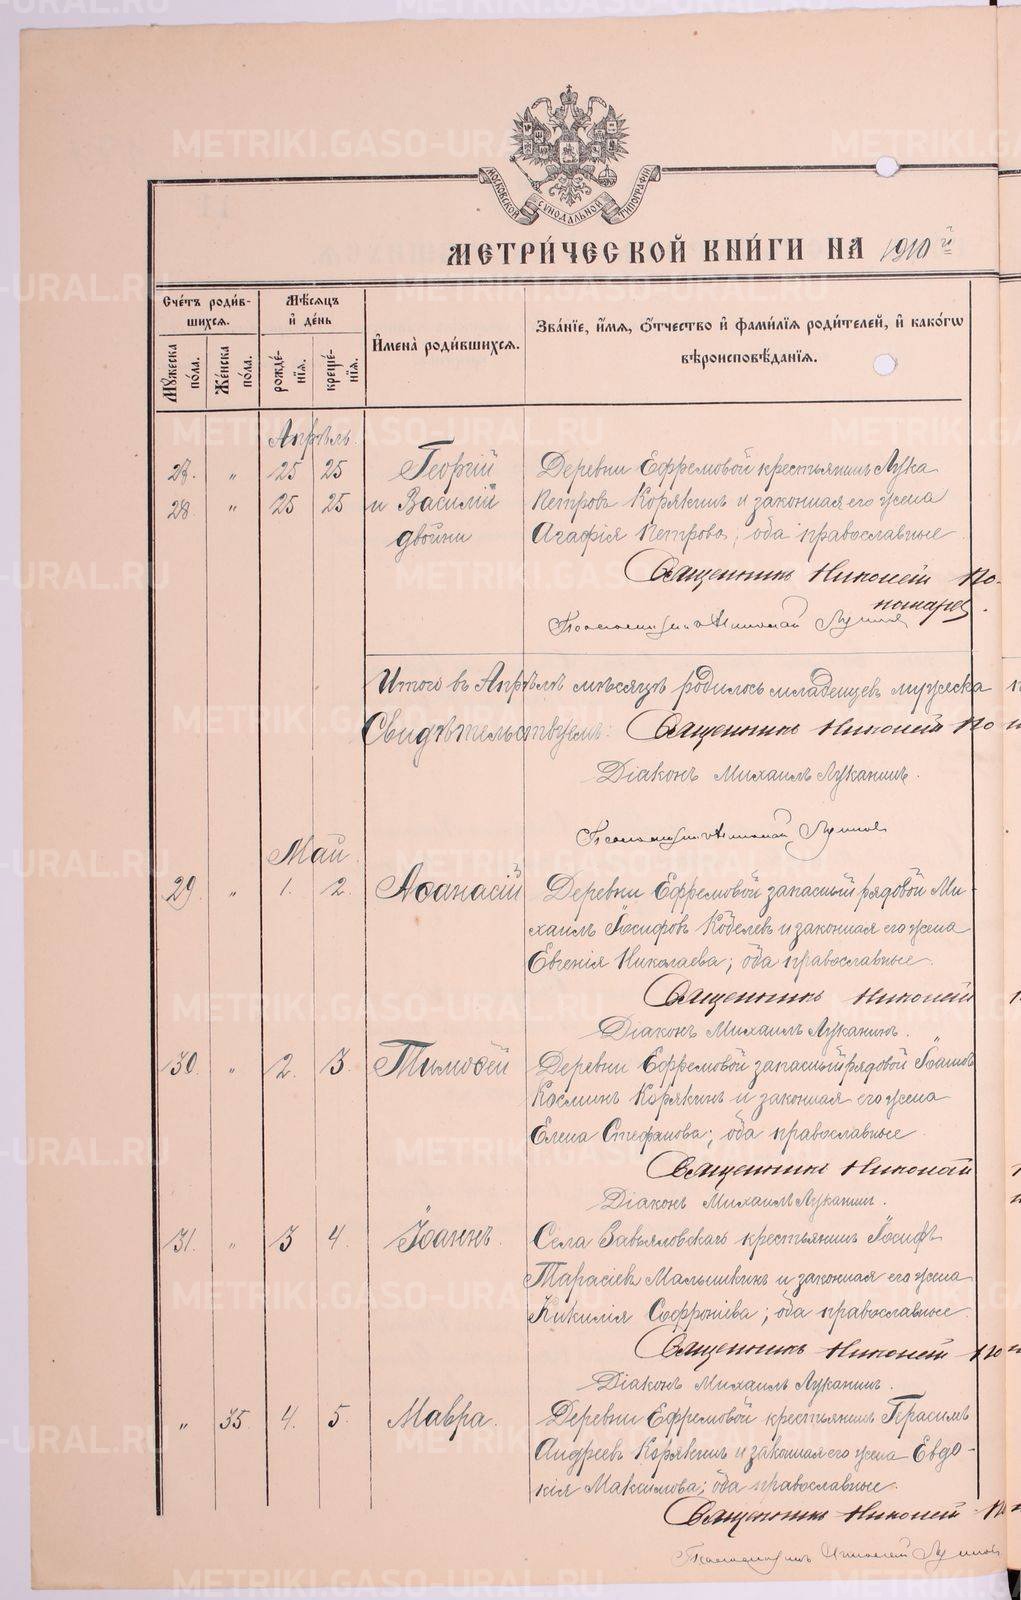 МОСКОВСКОЙ СУНОДАЛЬНОЙ ТИПОГРАФІИ
МЕТРИ́ЧЕСКОЙ КНИ́ГИ НА 1910й
Сче́тъ роди́в-
шихся.
Мѣ́сяцъ
и҆ де́нь
И҆мена̀ роди́вшихся.
Зва́нїе, и҆́мя, ѻ҆́тчество и҆ фами́лїя роди́телей, и҆ како́гѡ
вѣроисповѣ́данїя.
Мꙋ́жеска по́ла.
Же́нска по́ла.
рожде́нїя.
креще́нїя.
Апрѣль.
27. " 25 25 Георгій Деревни Ефремовой крестьянинъ Лука
28. " 25 25 и Василій Петровъ Корякинъ и законная его жена
двойни Агафія Петрова; оба православные
Священникъ Николай По-
номарев.
Псаломщикъ Николай
Итого въ Апрѣлѣ мѣсяцѣ родилось младенцевъ мужеска
Свидѣтельствуемъ: Священникъ Николай По
Діаконъ Михаилъ Луканинъ.
Псаломщикъ Николай
Май
29. " 1. 2. Аѳанасій Деревни Ефремовой запасный рядовой Ми-
хаилъ Іосифовъ Кобелевъ и законная его жена
Евгенія Николаева; оба православные.
Священникъ Николай
Діаконъ Михаилъ Луканинъ.
30. " 2. 3. Тимоѳей Деревни Ефремовой запасный рядовой Іоаннъ
Косминъ Корякинъ и законная его жена
Елена Стефанова; оба православные.
Священникъ Николай
Діаконъ Михаилъ Луканинъ.
31. " 3 4. Іоаннъ. Села Завьяловскаго крестьянинъ Іосифъ
Тарасіевъ Малышкинъ и законная его жена
Кикилія Софроніева; оба православные.
Священникъ Николай По
Діаконъ Михаилъ Луканинъ.
" 35. 4. 5. Мавра. Деревни Ефремовой крестьянинъ Герасимъ
Андреевъ Корякинъ и законная его жена Евдо-
кія Максимова; оба православные.
Священникъ Николай По
Псаломщикъ Николай
METRIKI.GASO-URAL.RU